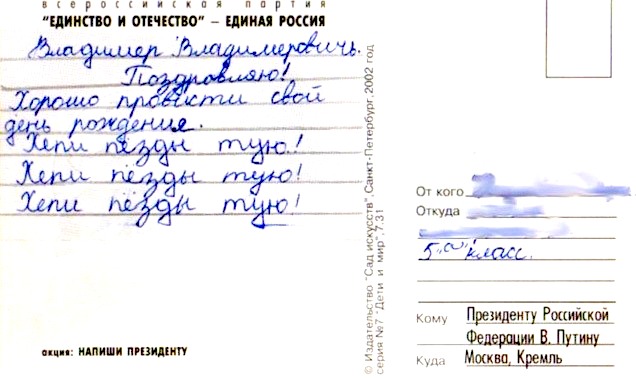 всероссийская партия
"ЕДИНСТВО И ОТЕЧЕСТВО" – ЕДИНАЯ РОССИЯ
Владимер Владимерович.
Поздровляю!
Хорошо провести свой
день рождения.
Хепи пёзды тую!
Хепи пёзды тую!
Хепи пёзды тую!
акция: НАПИШИ ПРЕЗИДЕНТУ
© Издательство "Сад искусств", Санкт-Петербург, 2002 год
серия №7 "Дети и мир", 7.31
От кого
Откуда
5 "а" класс.
Кому Президенту Российской
Федерации В. Путину
Куда Москва, Кремль